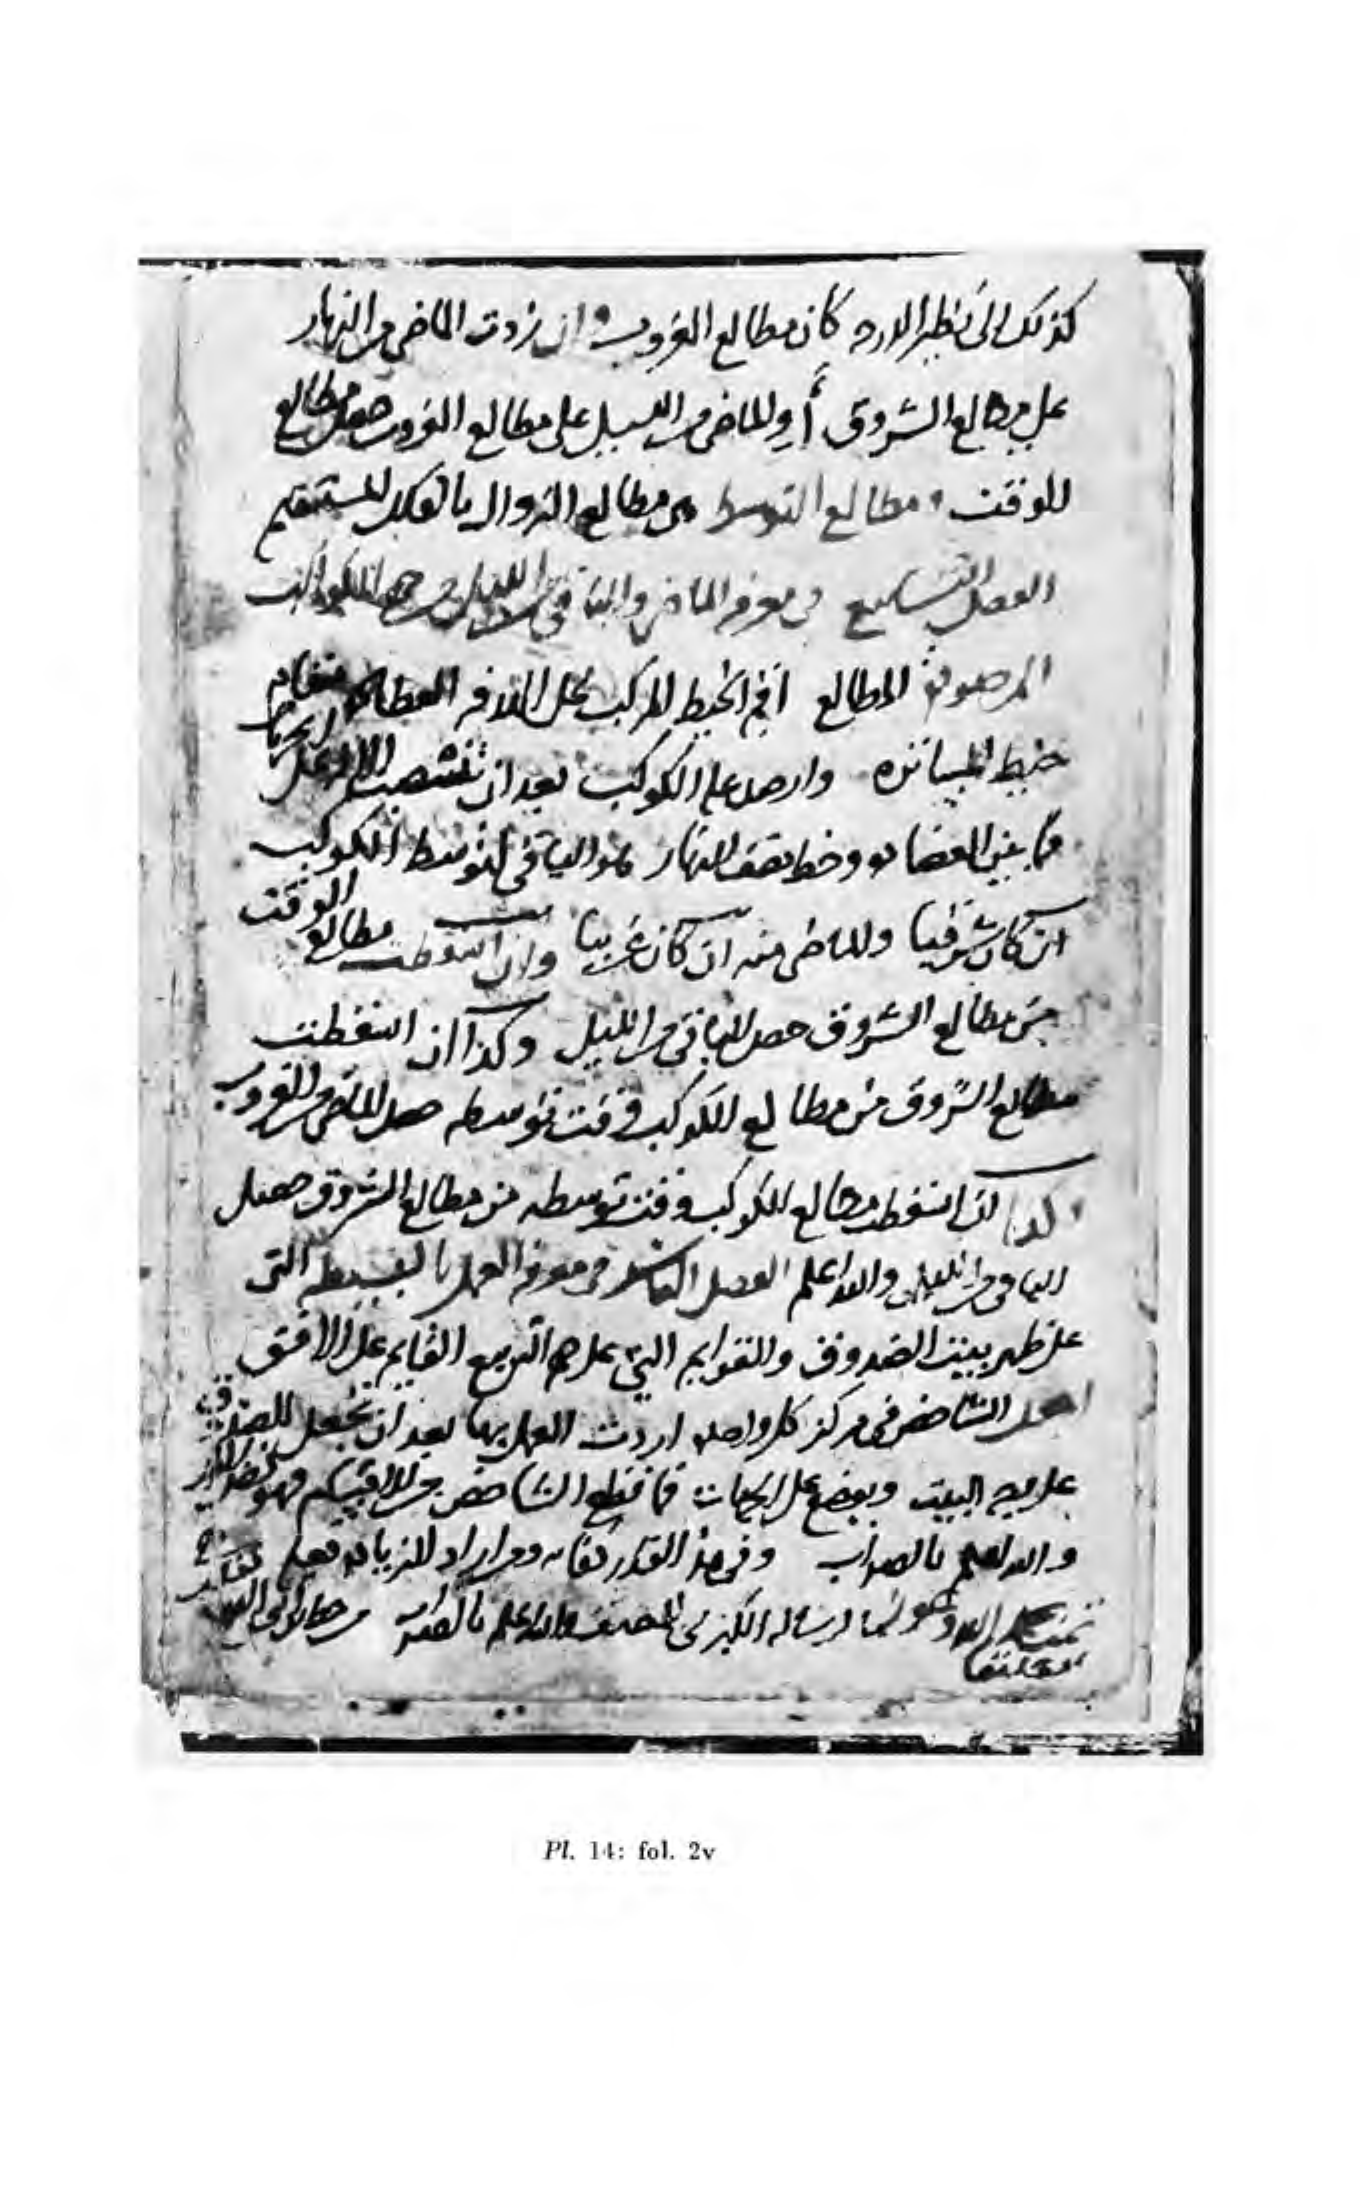 كذلك الى نظير الدرجه كان مطالع الغروب وان زدت الماضي من النهار
على مطالع الشروق أو الماضي من الليل على مطالع الغروب حصل مطالع
للوقت ومطالع التوسط هي مطالع الزوال بالفلك المستقيم
الفصل التاسع في معرفة الماضي والباقي من الليل من جهة الكواكب
المرصودة المطالع اقم الخيط المركب على الدائرة مقام
خيط المساترة وارصد على الكوكب بعد ان تنصب الالة على الجهات
فما بين العضادة وخط نصف النهار هو الباقي لتوسط الكوكب
ان كان شرقيا والماضي منه ان كان غربيا وان اسقطت مطالع الوقت
من مطالع الشروق حصل الباقي من الليل وكذا ان اسقطت
مطالع الشروق من مطالع الكوكب وقت توسطه حصل الماضي من الغروب
وكذا ان اسقطت مطالع الكوكب وقت توسطه من مطالع الشروق حصل
الباقي من الليل والله اعلم الفصل العاشر في معرفة العمل بالبسيطة التي
على ظهر بيت الصندوق والقوايم التي على التربيع القايم على الافق
اجعل الشاخص في مركز كل واحدة اردت العمل بها بعد ان تجعل الصندوق
على البيت ويوضع على الجهات فما قطع الشاخص من الاقسام فهو
والله اعلم بالصواب وفي هذا القدر كفاية ومن اراد الزيادة
الرسالة الكبرى للمصنف والله اعلم بالصواب
Pl. 14: fol. 2v